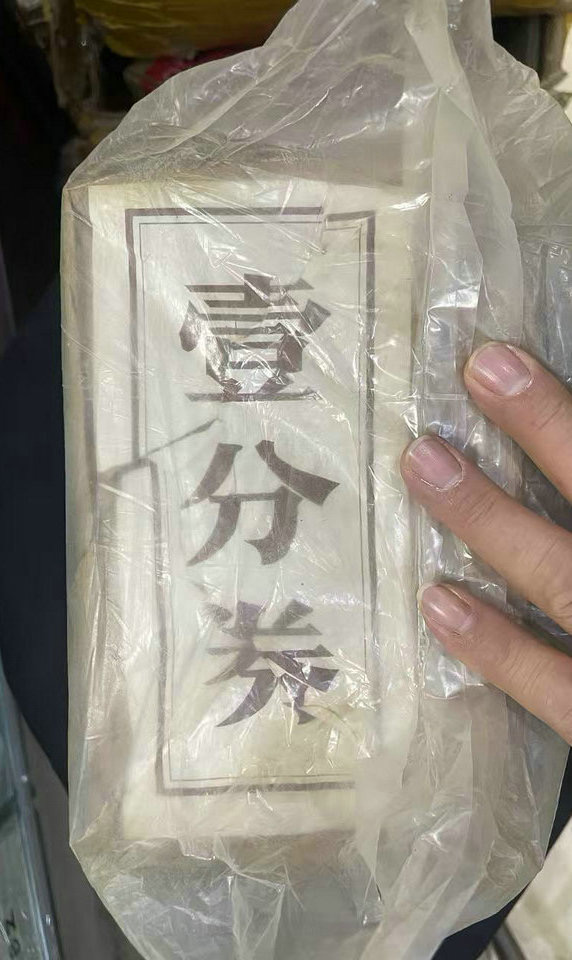 壹分券